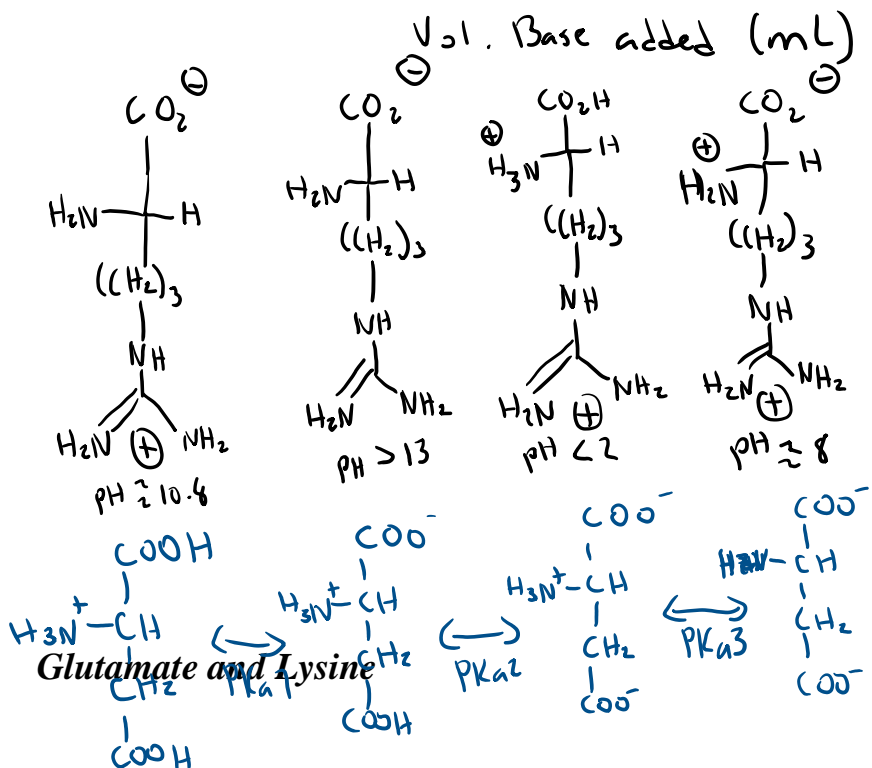 Vol. Base added (mL)
CO₂⊖
H₂N H
(CH₂)₃
NH
H₂N ⊕ NH₂
pH ≈ 10.8
CO₂⊖
H₂N H
(CH₂)₃
NH
H₂N NH₂
pH > 13
CO₂H
⊕
H₃N H
(CH₂)₃
NH
H₂N ⊕ NH₂
pH < 2
CO₂⊖
⊕
H₂N H
(CH₂)₃
NH
H₂N ⊕ NH₂
pH ≈ 8
COOH
H₃N⁺-CH
CH₂
COOH
PKa1
COO⁻
H₃N⁺-CH
CH₂
COOH
PKa2
COO⁻
H₃N⁺-CH
CH₂
COO⁻
PKa3
COO⁻
CH
CH₂
COO⁻
Glutamate and Lysine